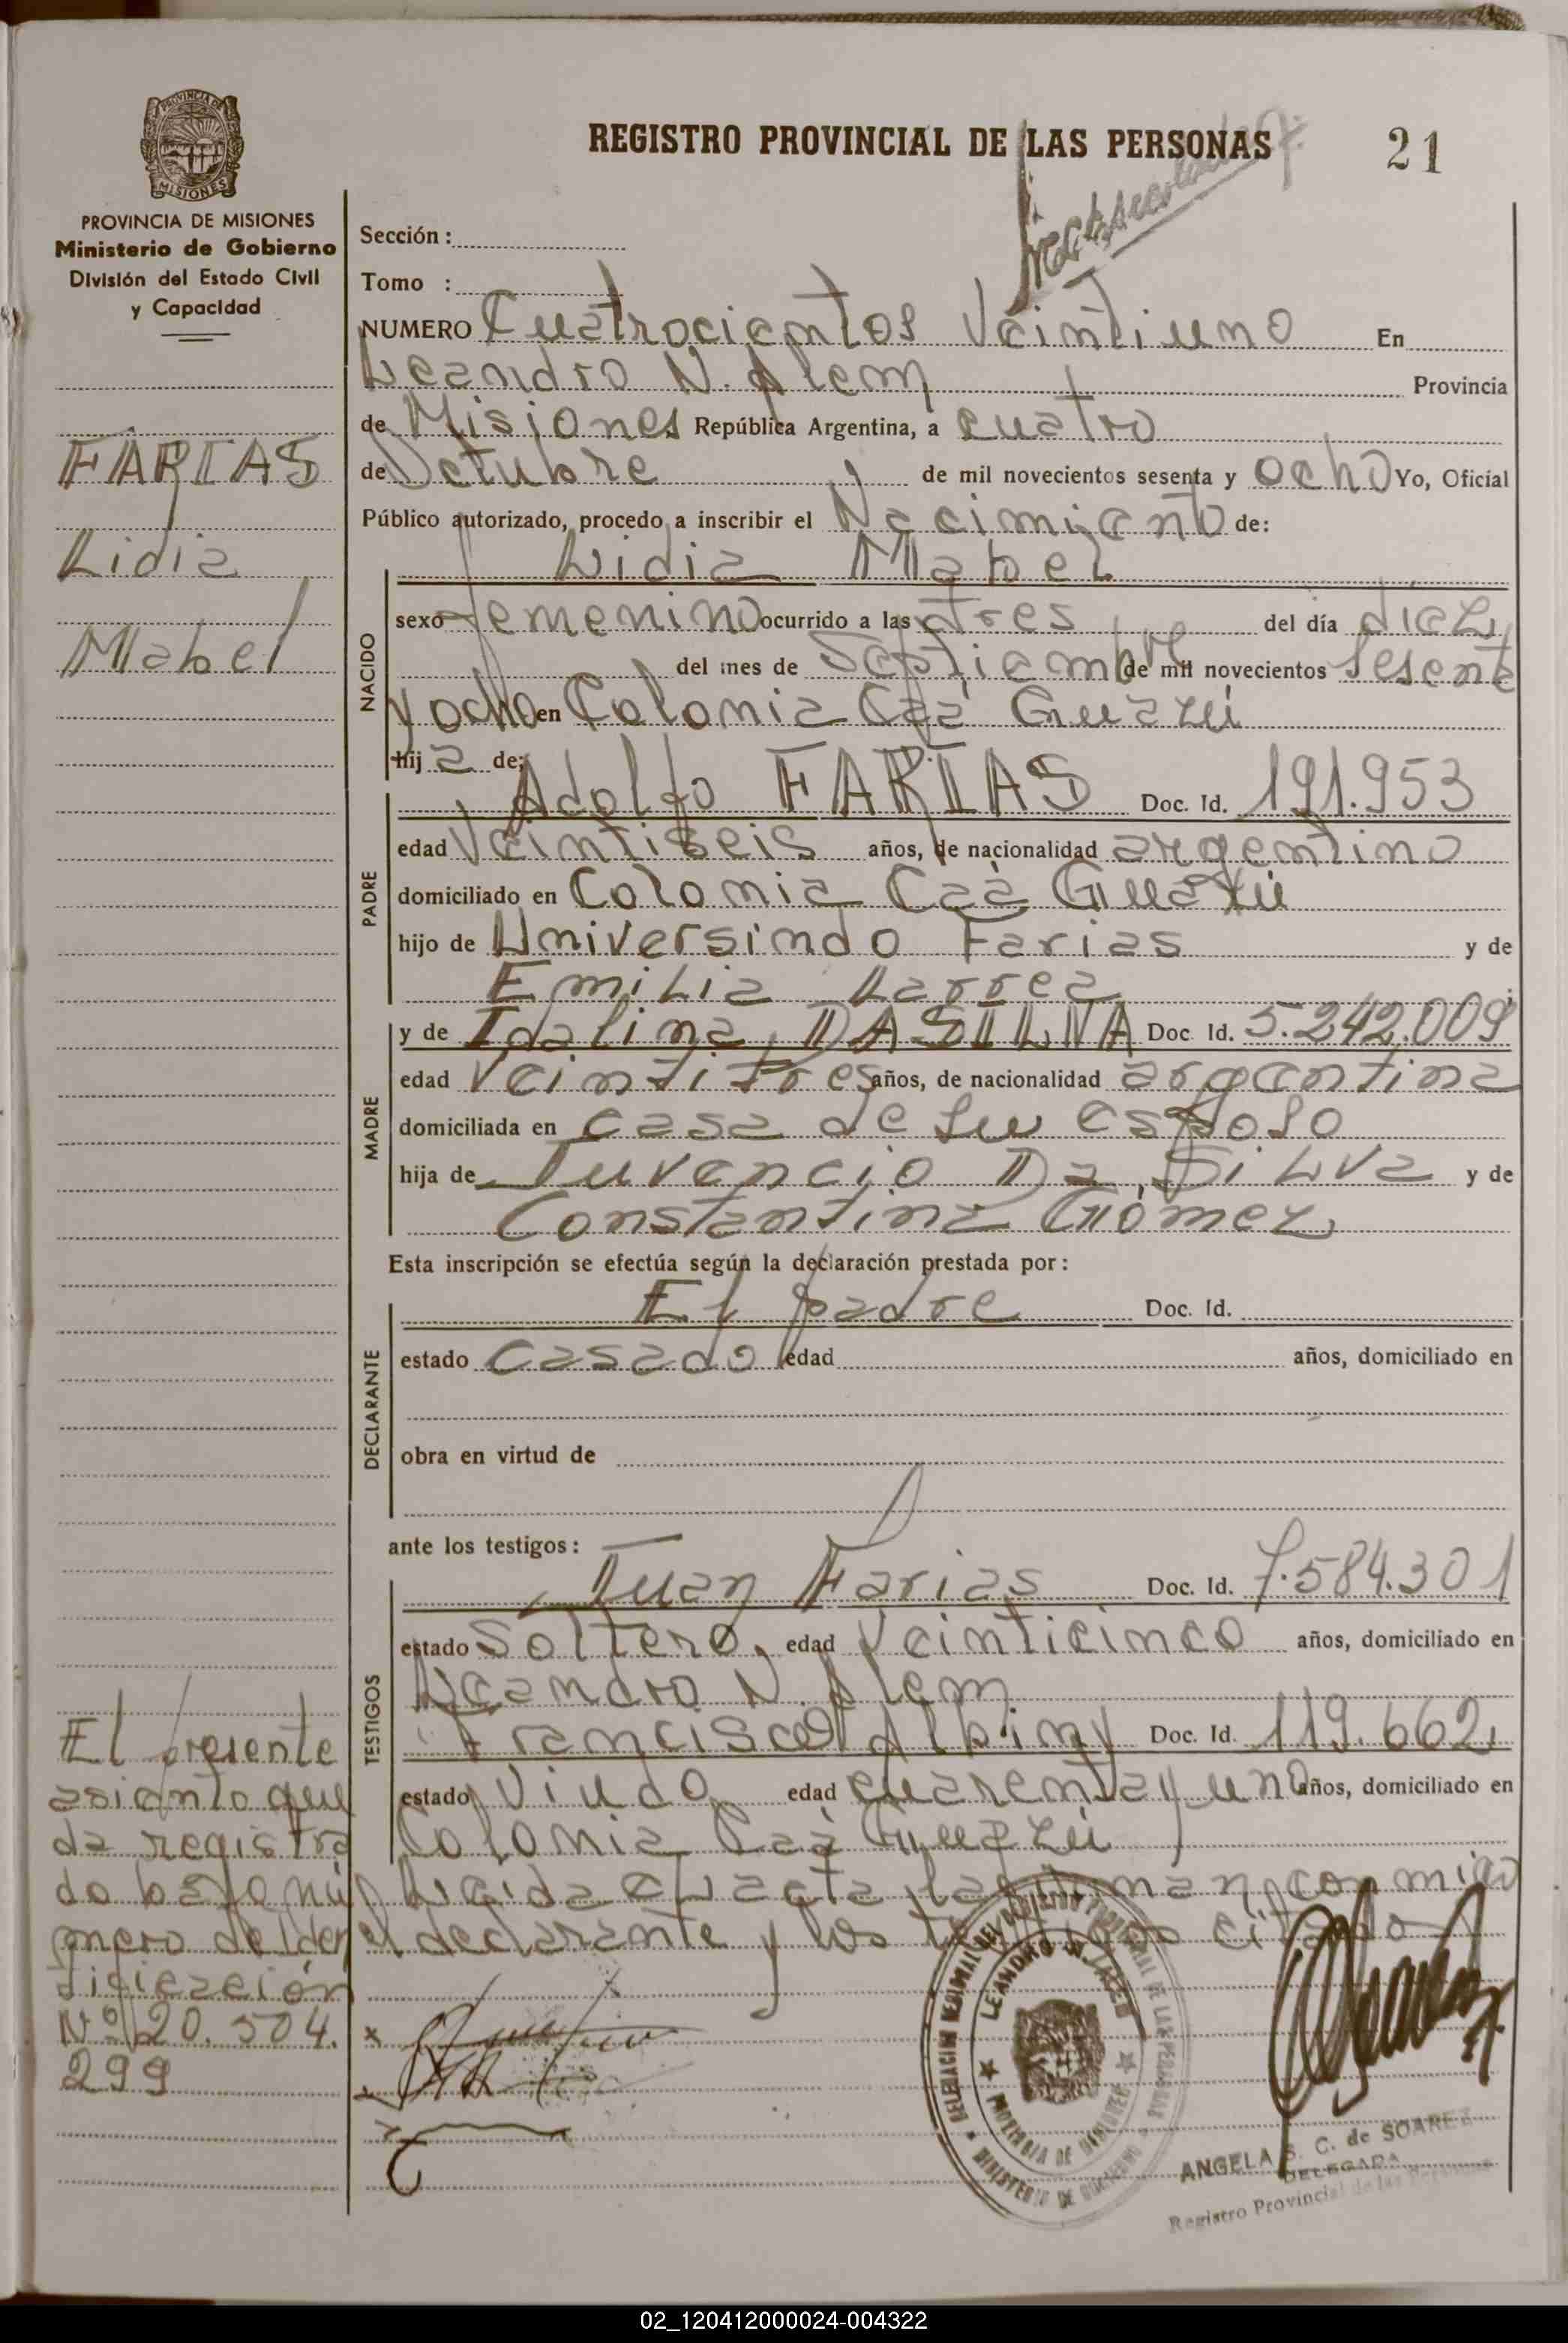 REGISTRO PROVINCIAL DE LAS PERSONAS
21
PROVINCIA DE MISIONES
Ministerio de Gobierno
División del Estado Civil
y Capacidad
FARIAS
Lidia
Mabel
El presente
asiento que
da registra
do bajo nú
mero de Iden
tificación
Nº 20.504.
299
Sección:
Tomo :
NUMERO Cuatrocientos Veintiuno En
Leandro N. Alem Provincia
de Misiones República Argentina, a cuatro
de Octubre de mil novecientos sesenta y ocho Yo, Oficial
Público autorizado, procedo a inscribir el Nacimiento de:
Lidia Mabel
NACIDO
sexo femenino ocurrido a las tres del día diez
del mes de Septiembre de mil novecientos sesenta
y ocho en Colonia Caá Guazú
Hij a de:
PADRE
Adolfo FARIAS Doc. Id. 191.953
edad Veintiseis años, de nacionalidad argentino
domiciliado en Colonia Caá Guazú
hijo de Universindo Farias y de
Emilia Larrea
MADRE
y de Idalina DA SILVA Doc. Id. 5.242.009
edad Veintitres años, de nacionalidad argentina
domiciliada en casa de su esposo
hija de Juvencio Da Silva y de
Constantina Gómez
Esta inscripción se efectúa según la declaración prestada por:
DECLARANTE
El padre Doc. Id.
estado casado edad años, domiciliado en
obra en virtud de
ante los testigos:
TESTIGOS
Juan Farias Doc. Id. 7.584.301
estado soltero, edad Veinticinco años, domiciliado en
Leandro N. Alem
Francisco Albiny Doc. Id. 119.662
estado Viudo edad cuarenta y uno años, domiciliado en
Colonia Caá Guazú
Leida el acta, la firman conmigo
el declarante y los testigos citados
LEANDRO N. ALEM
PROVINCIA DE MISIONES
MINISTERIO DE GOBIERNO
ANGELA S. C. de SOAREZ
DELEGADA
Registro Provincial de las Personas
02_120412000024-004322